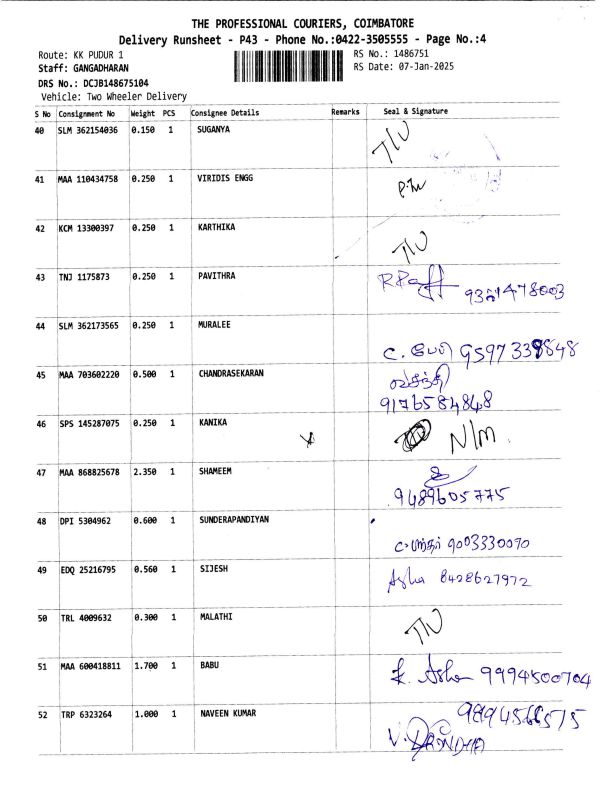 THE PROFESSIONAL COURIERS, COIMBATORE
Delivery Runsheet - P43 - Phone No.:0422-3505555 - Page No.:4
Route: KK PUDUR 1 RS No.: 1486751
Staff: GANGADHARAN RS Date: 07-Jan-2025
DRS No.: DCJB148675104
Vehicle: Two Wheeler Delivery
S No Consignment No Weight PCS Consignee Details Remarks Seal & Signature
40 SLM 362154036 0.150 1 SUGANYA
41 MAA 110434758 0.250 1 VIRIDIS ENGG
42 KCM 13300397 0.250 1 KARTHIKA
43 TNJ 1175873 0.250 1 PAVITHRA
44 SLM 362173565 0.250 1 MURALEE
C. பேபி 9597339848
45 MAA 703602220 0.500 1 CHANDRASEKARAN வசந்தி
9176584848
46 SPS 145287075 0.250 1 KANIKA N/M.
47 MAA 868825678 2.350 1 SHAMEEM
9489605775
48 DPI 5304962 0.600 1 SUNDERAPANDIYAN
9003330070
49 EDQ 25216795 0.560 1 SIJESH Asha 8428627972
50 TRL 4009632 0.300 1 MALATHI
51 MAA 600418811 1.700 1 BABU K. Asha 9994500704
52 TRP 6323264 1.000 1 NAVEEN KUMAR